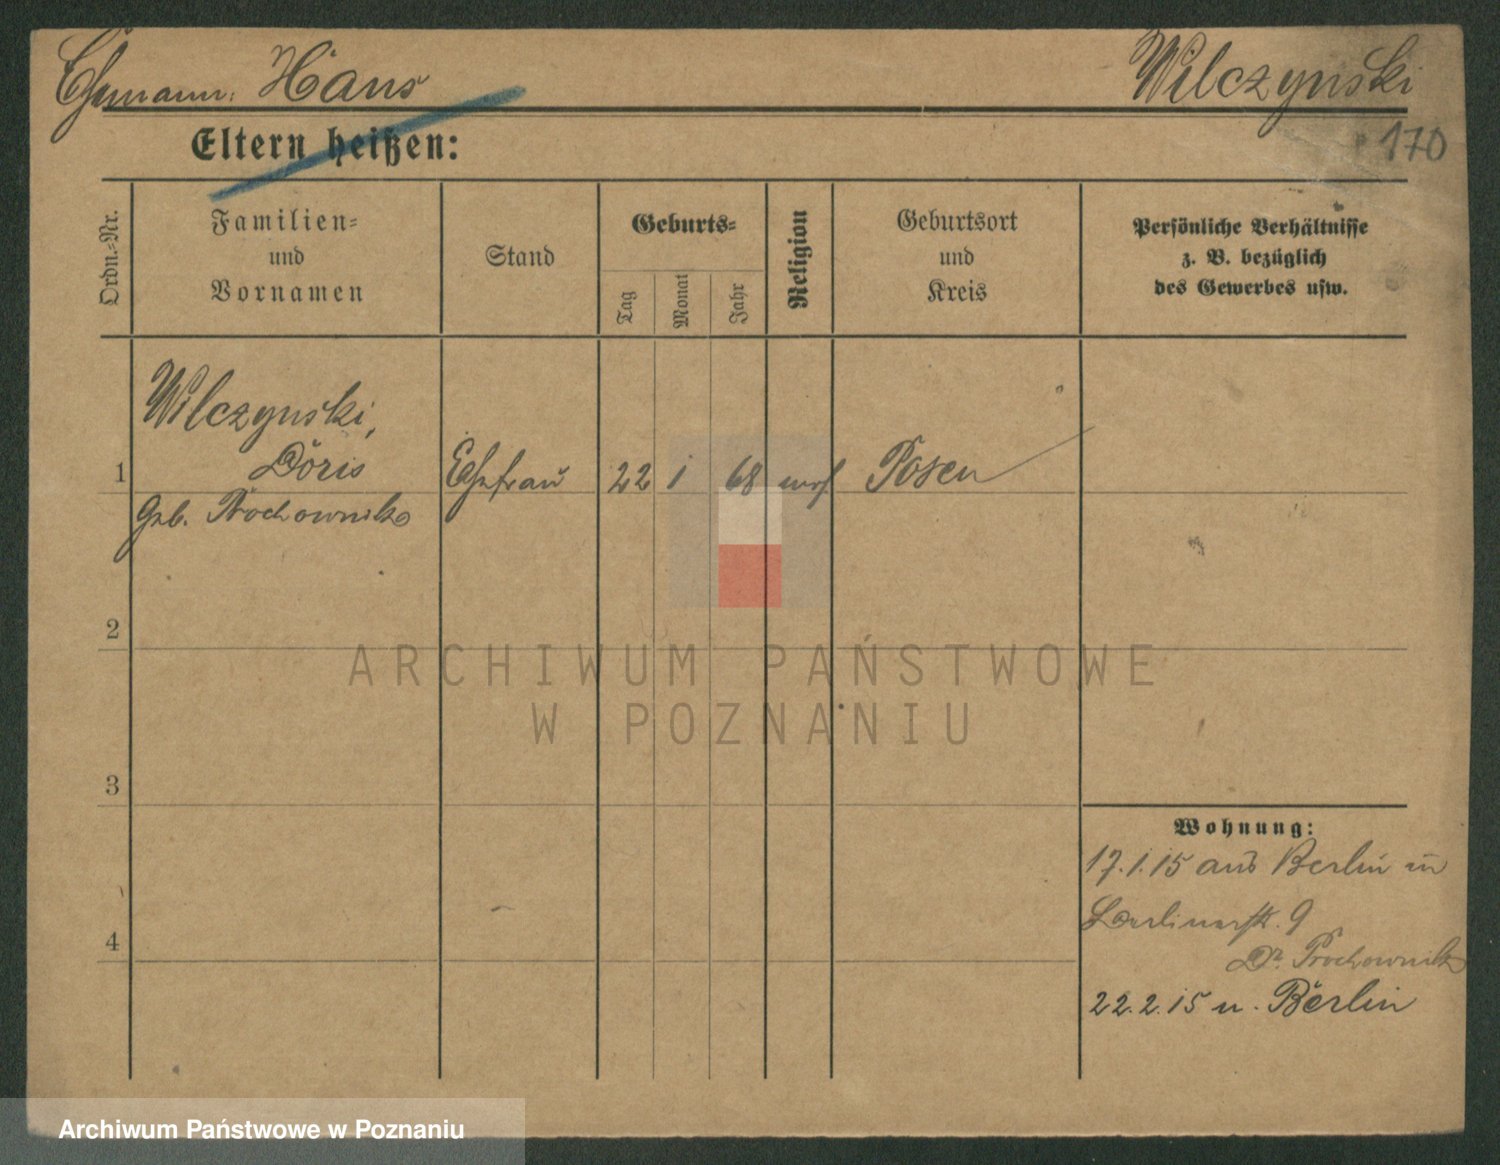 Ehemann: Hans
Wilczynski
170
Eltern heißen:
Ordn.=Nr.
Familien=
und
Vornamen
Stand
Geburts=
Tag
Monat
Jahr
Religion
Geburtsort
und
Kreis
Persönliche Verhältnisse
z. B. bezüglich
des Gewerbes usw.
1
Wilczynski,
Doris
geb. Prochownik
Ehefrau
22
1
68
mos
Posen
2
3
4
Wohnung:
17.1.15 aus Berlin in
Berlinerstr. 9
Dr. Prochownik
22.2.15 n. Berlin
ARCHIWUM PAŃSTWOWE
W POZNANIU
Archiwum Państwowe w Poznaniu